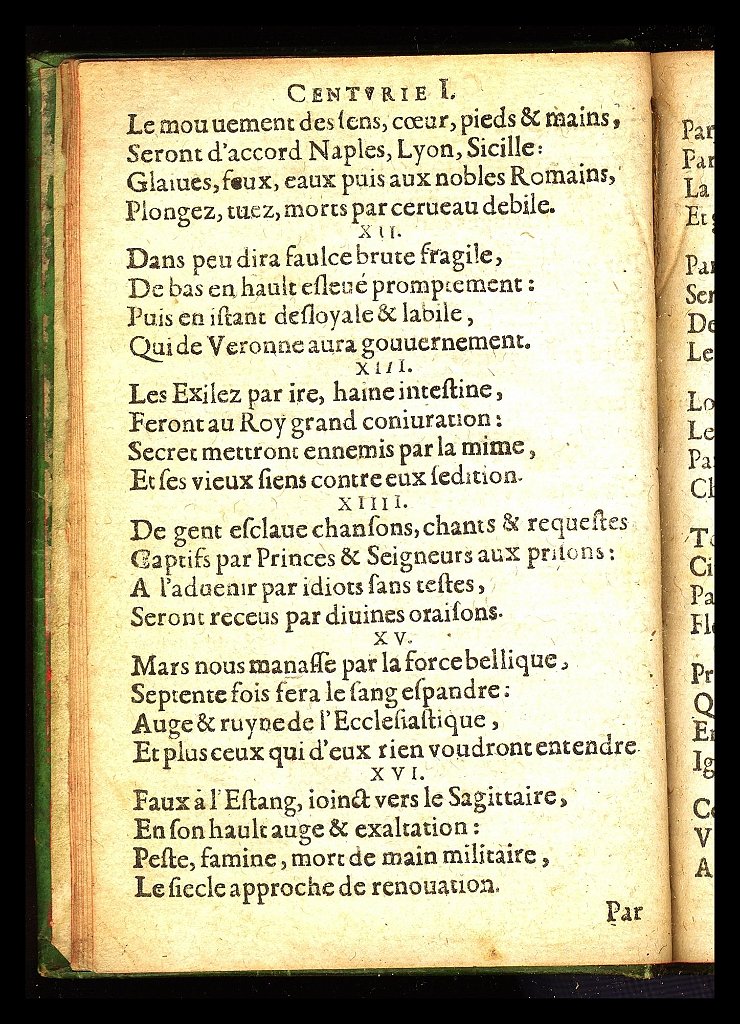 CENTVRIE I.
Le mouuement des ſens, cœur, pieds & mains,
Seront d'accord Naples, Lyon, Sicille:
Glaiues, feux, eaux puis aux nobles Romains,
Plongez, tuez, morts par cerueau debile.
XII.
Dans peu dira faulce brute fragile,
De bas en hault eſleué promptement:
Puis en iſtant deſloyale & labile,
Qui de Veronne aura gouuernement.
XIII.
Les Exilez par ire, haine inteſtine,
Feront au Roy grand coniuration:
Secret mettront ennemis par la mime,
Et ſes vieux ſiens contre eux ſedition.
XIIII.
De gent eſclaue chanſons, chants & requeſtes
Captifs par Princes & Seigneurs aux priſons:
A l'aduenir par idiots ſans teſtes,
Seront receus par diuines oraiſons.
XV.
Mars nous manaſſe par la force bellique,
Septente fois fera le ſang eſpandre:
Auge & ruyne de l'Eccleſiaſtique,
Et plus ceux qui d'eux rien voudront entendre
XVI.
Faux à l'Eſtang, ioinct vers le Sagittaire,
En ſon hault auge & exaltation:
Peſte, famine, mort de main militaire,
Le ſiecle approche de renouation.
Par
Par
Par
La
Et
Par
Ser
De
Le
Lo
Le
Pa
Ch
To
Ci
Pa
Fle
Pr
Q
En
Ig
Ce
V
A